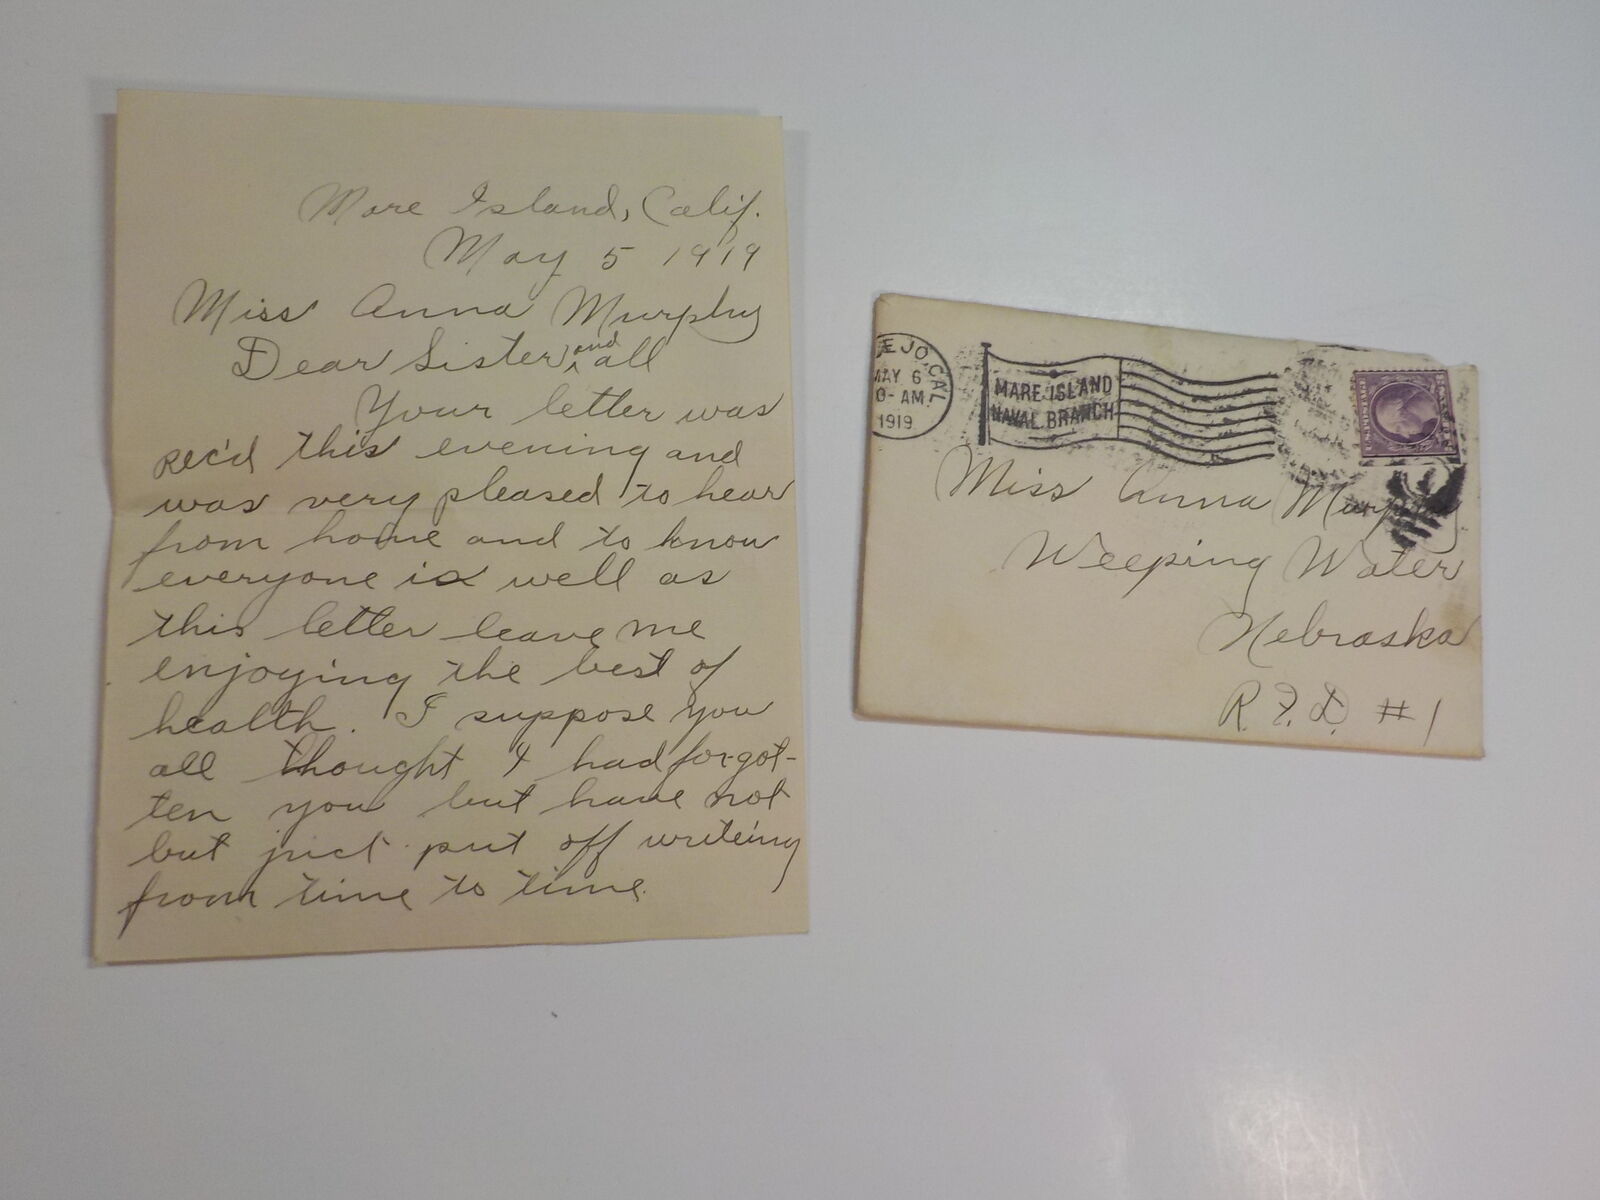 Mare Island, Calif.
May 5 1919
Miss Anna Murphy
Dear Sister, and all
Your letter was
rec'd this evening and
was very pleased to hear
from home and to know
everyone is well as
this letter leave me
enjoying the best of
health. I suppose you
all thought I had forgot-
ten you but have not
but just put off writeing
from time to time.
EJO, CAL
MAY 6
0-AM
1919
MARE ISLAND
NAVAL BRANCH
Miss Anna Murphy
Weeping Water
Nebraska
R.F.D. #1